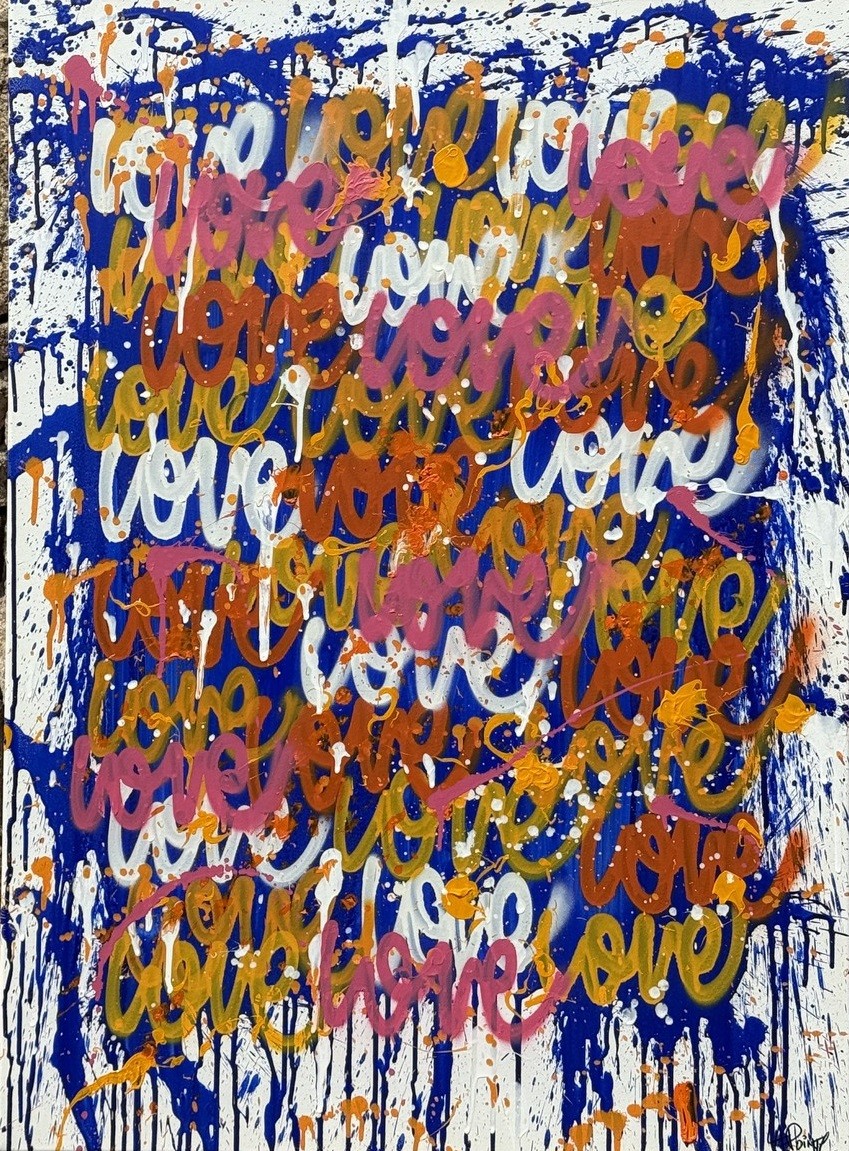 love love love love
love love
love love love
love
love love
love love
love love love
love love
love
love love love
love
love love
love love
love love
love love
love love love